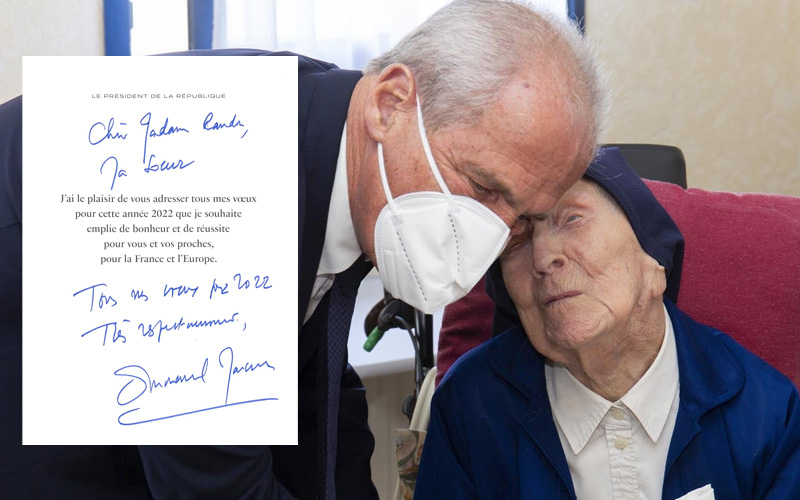 LE PRÉSIDENT DE LA RÉPUBLIQUE
Chère Madame Randon,
Ma Soeur
J'ai le plaisir de vous adresser tous mes vœux
pour cette année 2022 que je souhaite
emplie de bonheur et de réussite
pour vous et vos proches,
pour la France et l'Europe.
Tous mes vœux pour 2022
Très respectueusement,
Emmanuel Macron